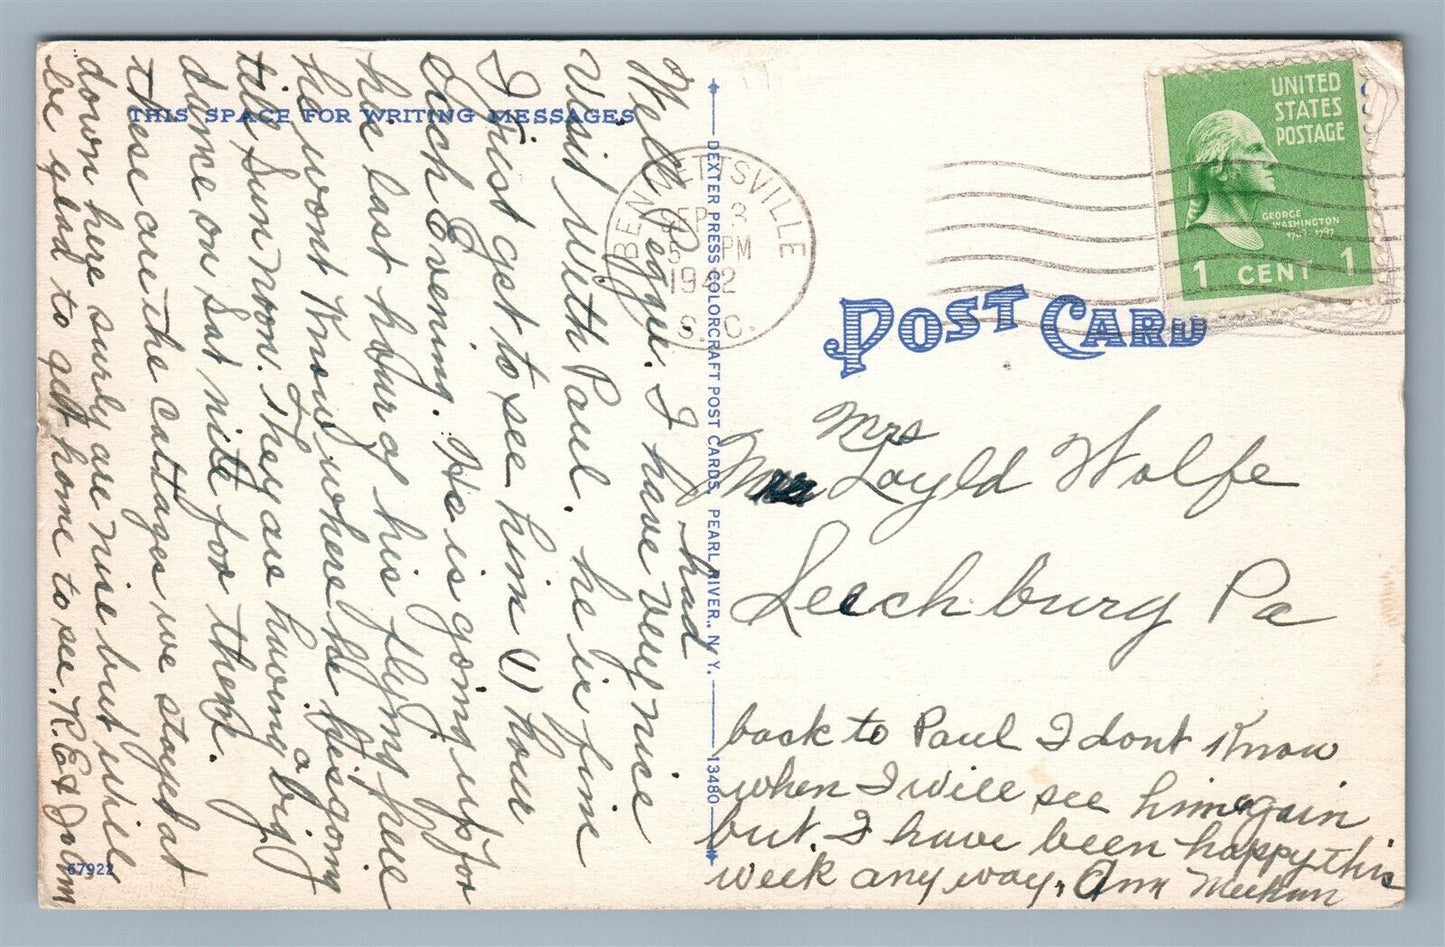 THIS SPACE FOR WRITING MESSAGES
Well Peggie. I have very nice
Visit with Paul. he is fine
I Just get to see him (1) hour
Each Evening. He is going up for
his last hour of his flying here
he wont Know where he his going
till Sun noon. They are having a big
dance on Sat nite for them.
these are the cattages we stayed at
down here surly are nise but will
be glad to get home to see. R.E &
had
67922
DEXTER PRESS COLORCRAFT POST CARDS, PEARL RIVER., N. Y.
13480
BENNETTSVILLE
SEP 3
5 PM
1942
S. C.
UNITED
STATES
POSTAGE
GEORGE
WASHINGTON
1732-1797
1 CENT 1
POST CARD
Mrs
Loyld Wolfe
Leechburg Pa
back to Paul I dont Know
when I will see him again
but I have been happy this
week any way, Ann Meehan